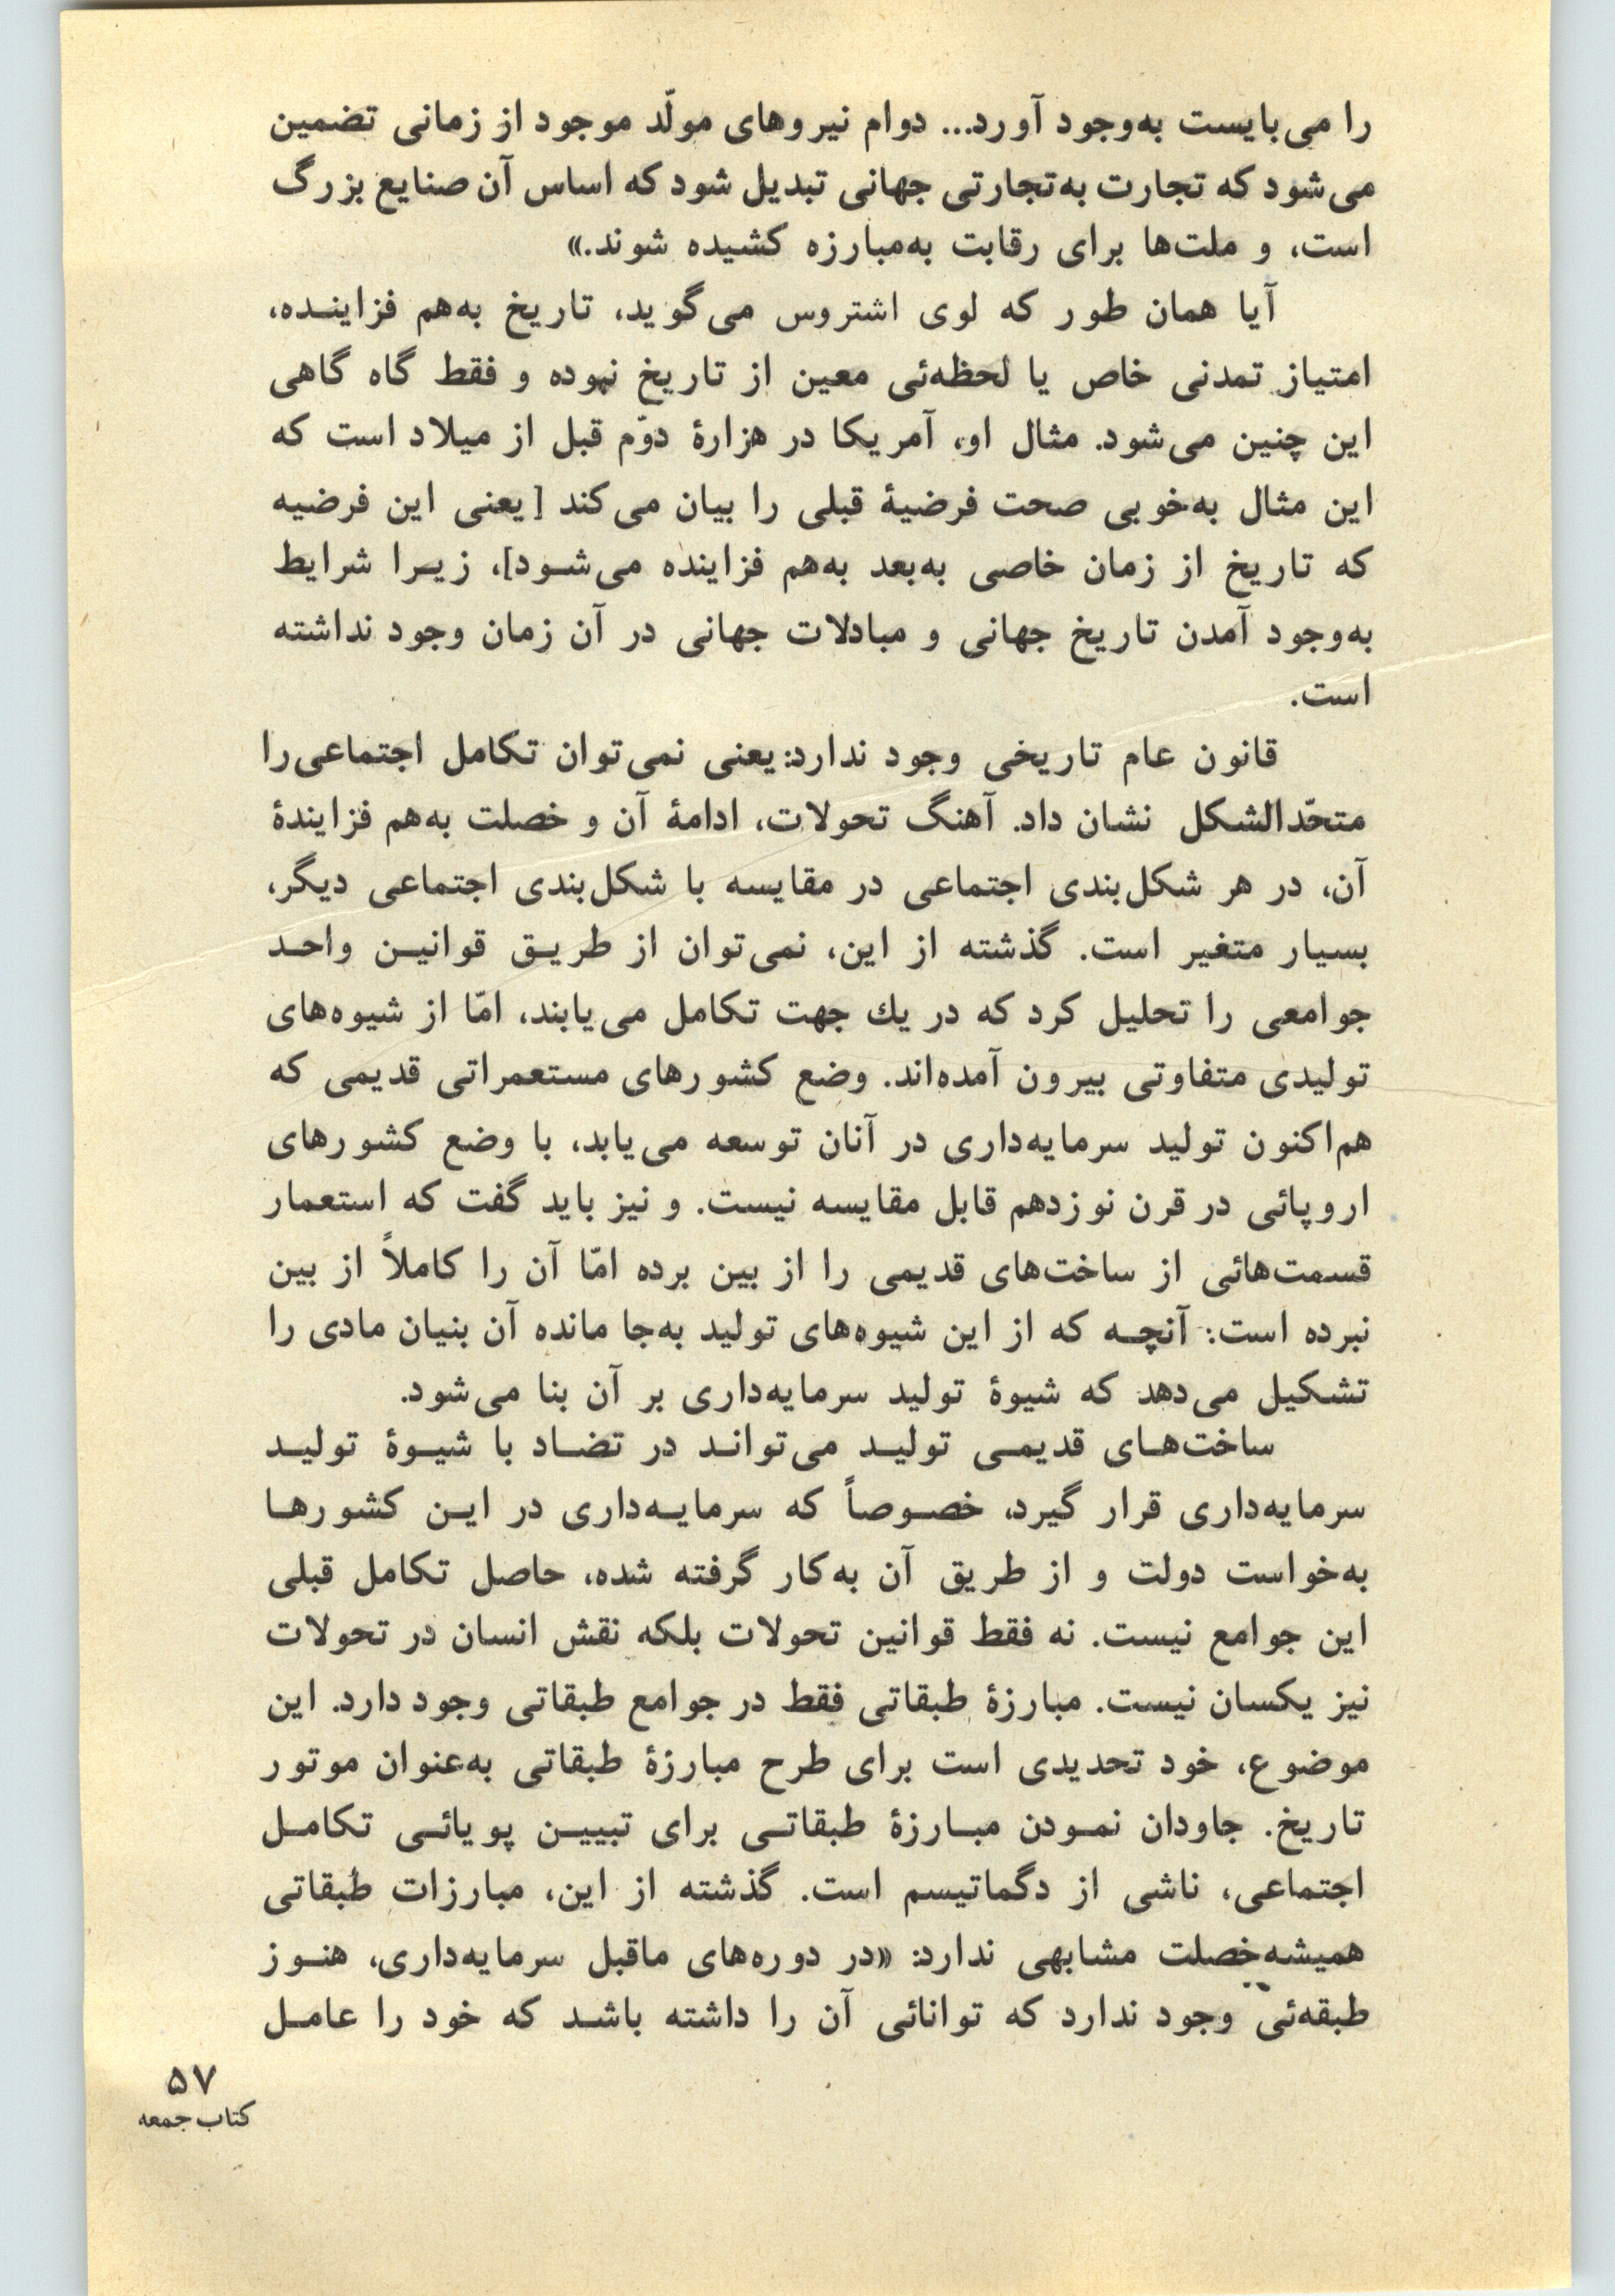 را می‌بایست به‌وجود آورد... دوام نیروهای مولّد موجود از زمانی تضمین
می‌شود که تجارت به‌تجارتی جهانی تبدیل شود که اساس آن صنایع بزرگ
است، و ملت‌ها برای رقابت به‌مبارزه کشیده شوند.»
آیا همان طور که لوی اشتروس می‌گوید، تاریخ به‌هم فزاینـده،
امتیاز تمدنی خاص یا لحظه‌ئی معین از تاریخ نبوده و فقط گاه گاهی
این چنین می‌شود. مثال او، آمریکا در هزارهٔ دوّم قبل از میلاد است که
این مثال به‌خوبی صحت فرضیهٔ قبلی را بیان می‌کند [یعنی این فرضیه
که تاریخ از زمان خاصی به‌بعد به‌هم فزاینده می‌شـود]، زیـرا شرایط
به‌وجود آمدن تاریخ جهانی و مبادلات جهانی در آن زمان وجود نداشته
است.
قانون عام تاریخی وجود ندارد: یعنی نمی‌توان تکامل اجتماعی را
متحّدالشکل نشان داد. آهنگ تحولات، ادامهٔ آن و خصلت به‌هم فزایندهٔ
آن، در هر شکل‌بندی اجتماعی در مقایسه با شکل‌بندی اجتماعی دیگر،
بسیار متغیر است. گذشته از این، نمی‌توان از طریـق قوانیـن واحـد
جوامعی را تحلیل کرد که در یك جهت تکامل می‌یابند، امّا از شیوه‌های
تولیدی متفاوتی بیرون آمده‌اند. وضع کشورهای مستعمراتی قدیمی که
هم‌اکنون تولید سرمایه‌داری در آنان توسعه می‌یابد، با وضع کشورهای
اروپائی در قرن نوزدهم قابل مقایسه نیست. و نیز باید گفت که استعمار
قسمت‌هائی از ساخت‌های قدیمی را از بین برده امّا آن را کاملاً از بین
نبرده است: آنچـه که از این شیوه‌های تولید به‌جا مانده آن بنیان مادی را
تشکیل می‌دهد که شیوهٔ تولید سرمایه‌داری بر آن بنا می‌شود.
ساخت‌هـای قدیمـی تولیـد می‌توانـد در تضـاد با شیـوهٔ تولیـد
سرمایه‌داری قرار گیرد، خصـوصاً که سرمایـه‌داری در ایـن کشورهـا
به‌خواست دولت و از طریق آن به‌کار گرفته شده، حاصل تکامل قبلی
این جوامع نیست. نه فقط قوانین تحولات بلکه نقش انسان در تحولات
نیز یکسان نیست. مبارزهٔ طبقاتی فقط در جوامع طبقاتی وجود دارد. این
موضوع، خود تحدیدی است برای طرح مبارزهٔ طبقاتی به‌عنوان موتور
تاریخ. جاودان نمـودن مبـارزهٔ طبقاتـی برای تبییـن پویائـی تکامـل
اجتماعی، ناشی از دگماتیسم است. گذشته از این، مبارزات طبقاتی
همیشه خصلت مشابهی ندارد: «در دوره‌های ماقبل سرمایه‌داری، هنـوز
طبقه‌ئی وجود ندارد که توانائی آن را داشته باشـد که خود را عامـل
۵۷
کتاب جمعه